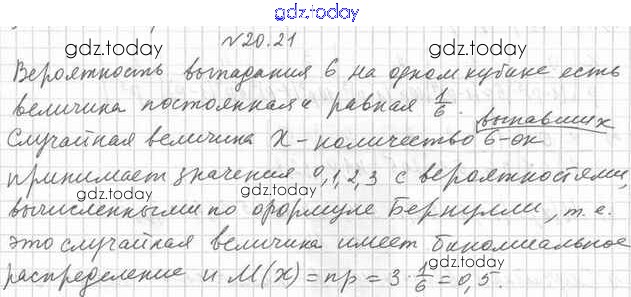 gdz.today
№20.21
gdz.today gdz.today
Вероятность выпадания 6 на одном кубике есть
величина постоянная и равная 1/6.
Случайная величина X - количество выпавших 6-ок
gdz.today gdz.today
принимает значения 0,1,2,3 с вероятностями,
вычисленными по формуле Бернулли, т.е.
это случайная величина имеет биномиальное
gdz.today
распределение и M(x) = np = 3 · 1/6 = 0,5.
gdz.today